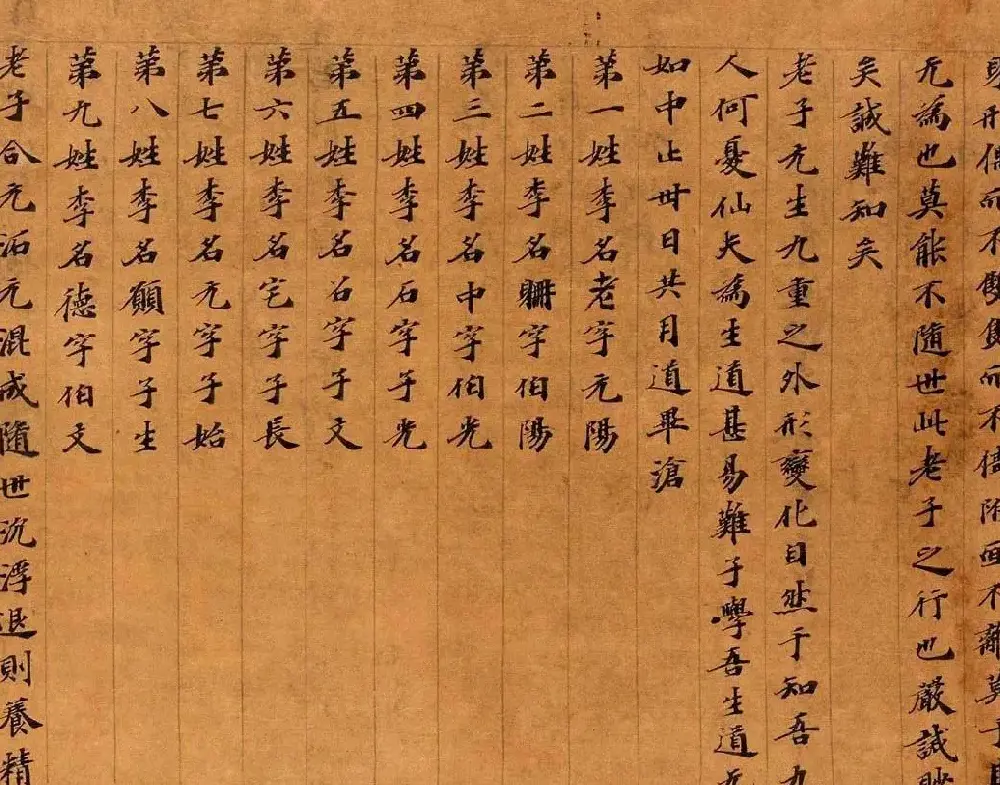 形偶而不雙隻而不倚附而不離莫于
无為也莫能不隨世此老子之行也嚴誡眇
矣誠難知矣
老子元生九重之外形變化自然于知吾九
人何憂仙夫為生道甚易難子學吾生道无
如中止卅日共月道畢滄
第一姓李名老字元陽
第二姓李名聃字伯陽
第三姓李名中字伯光
第四姓李名石字子光
第五姓李名石字子文
第六姓李名宅字子長
第七姓李名元字子始
第八姓李名願字子生
第九姓李名德字伯文
老子合元沰元混成隨世沉浮退則養精